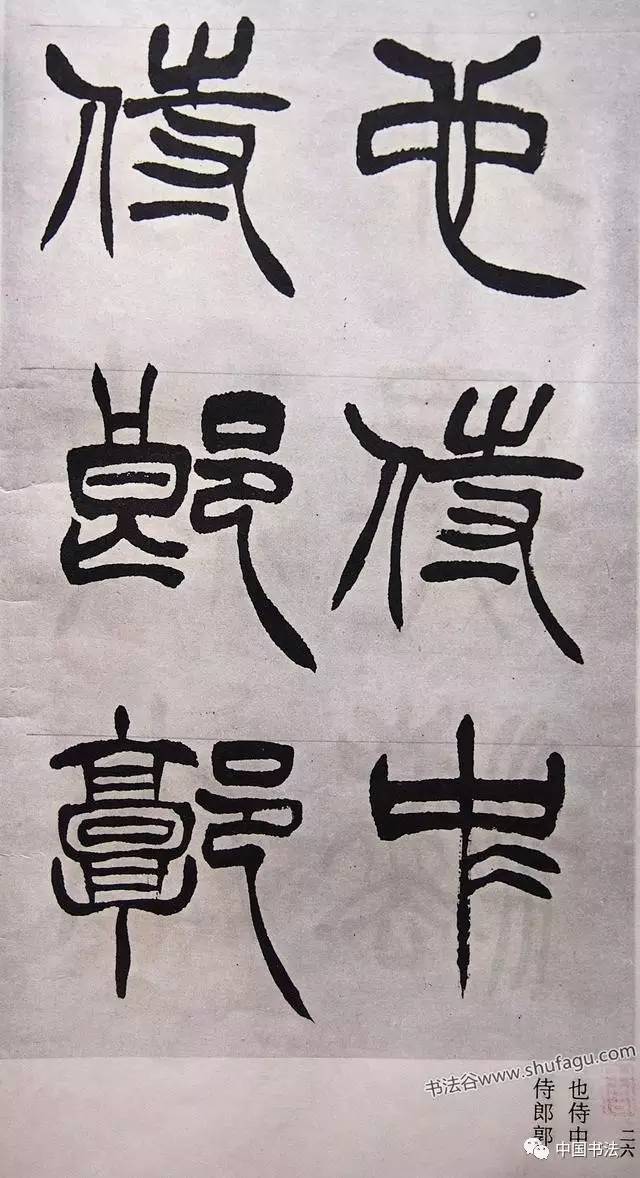 也侍中
侍郎郭
书法谷www.shufagu.com
二六
也侍中
侍郎郭
中国书法